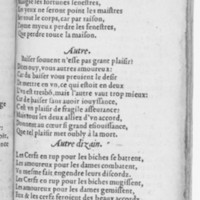 Malgré les fortunes senestres,
Les yeux ne seront point les maistres
Sur tout le corps, car par raison,
J'ayme myeux perdre les fenestres,
Que perdre toute la maison.
Autre.
Baiser souuent n'esse pas grant plaisir?
Dites ouy, vous autres amoureux:
Car du baiser vous prouient le desir
De mettre en vn, ce qui estoit en deux
L'vn est tresbõ, mais l'autre vaut trop mieux:
Car de baiser sans auoir iouyssance,
C'est vn plaisir de fragile asseurance:
Mais tous les deux alliez d'vn accord,
Donnent au cueur si grand esiouyssance,
Que tel plaisir met oubly à la mort.
Autre dizain.
Les Cerfs en rup pour les biches se batrent,
Les amoureux pour les dames combatent,
Vn mesme fait engendre leurs discords.
Les Cerfs en rup pour les biches mugissent,
Les amoureux pour les dames gemissent,